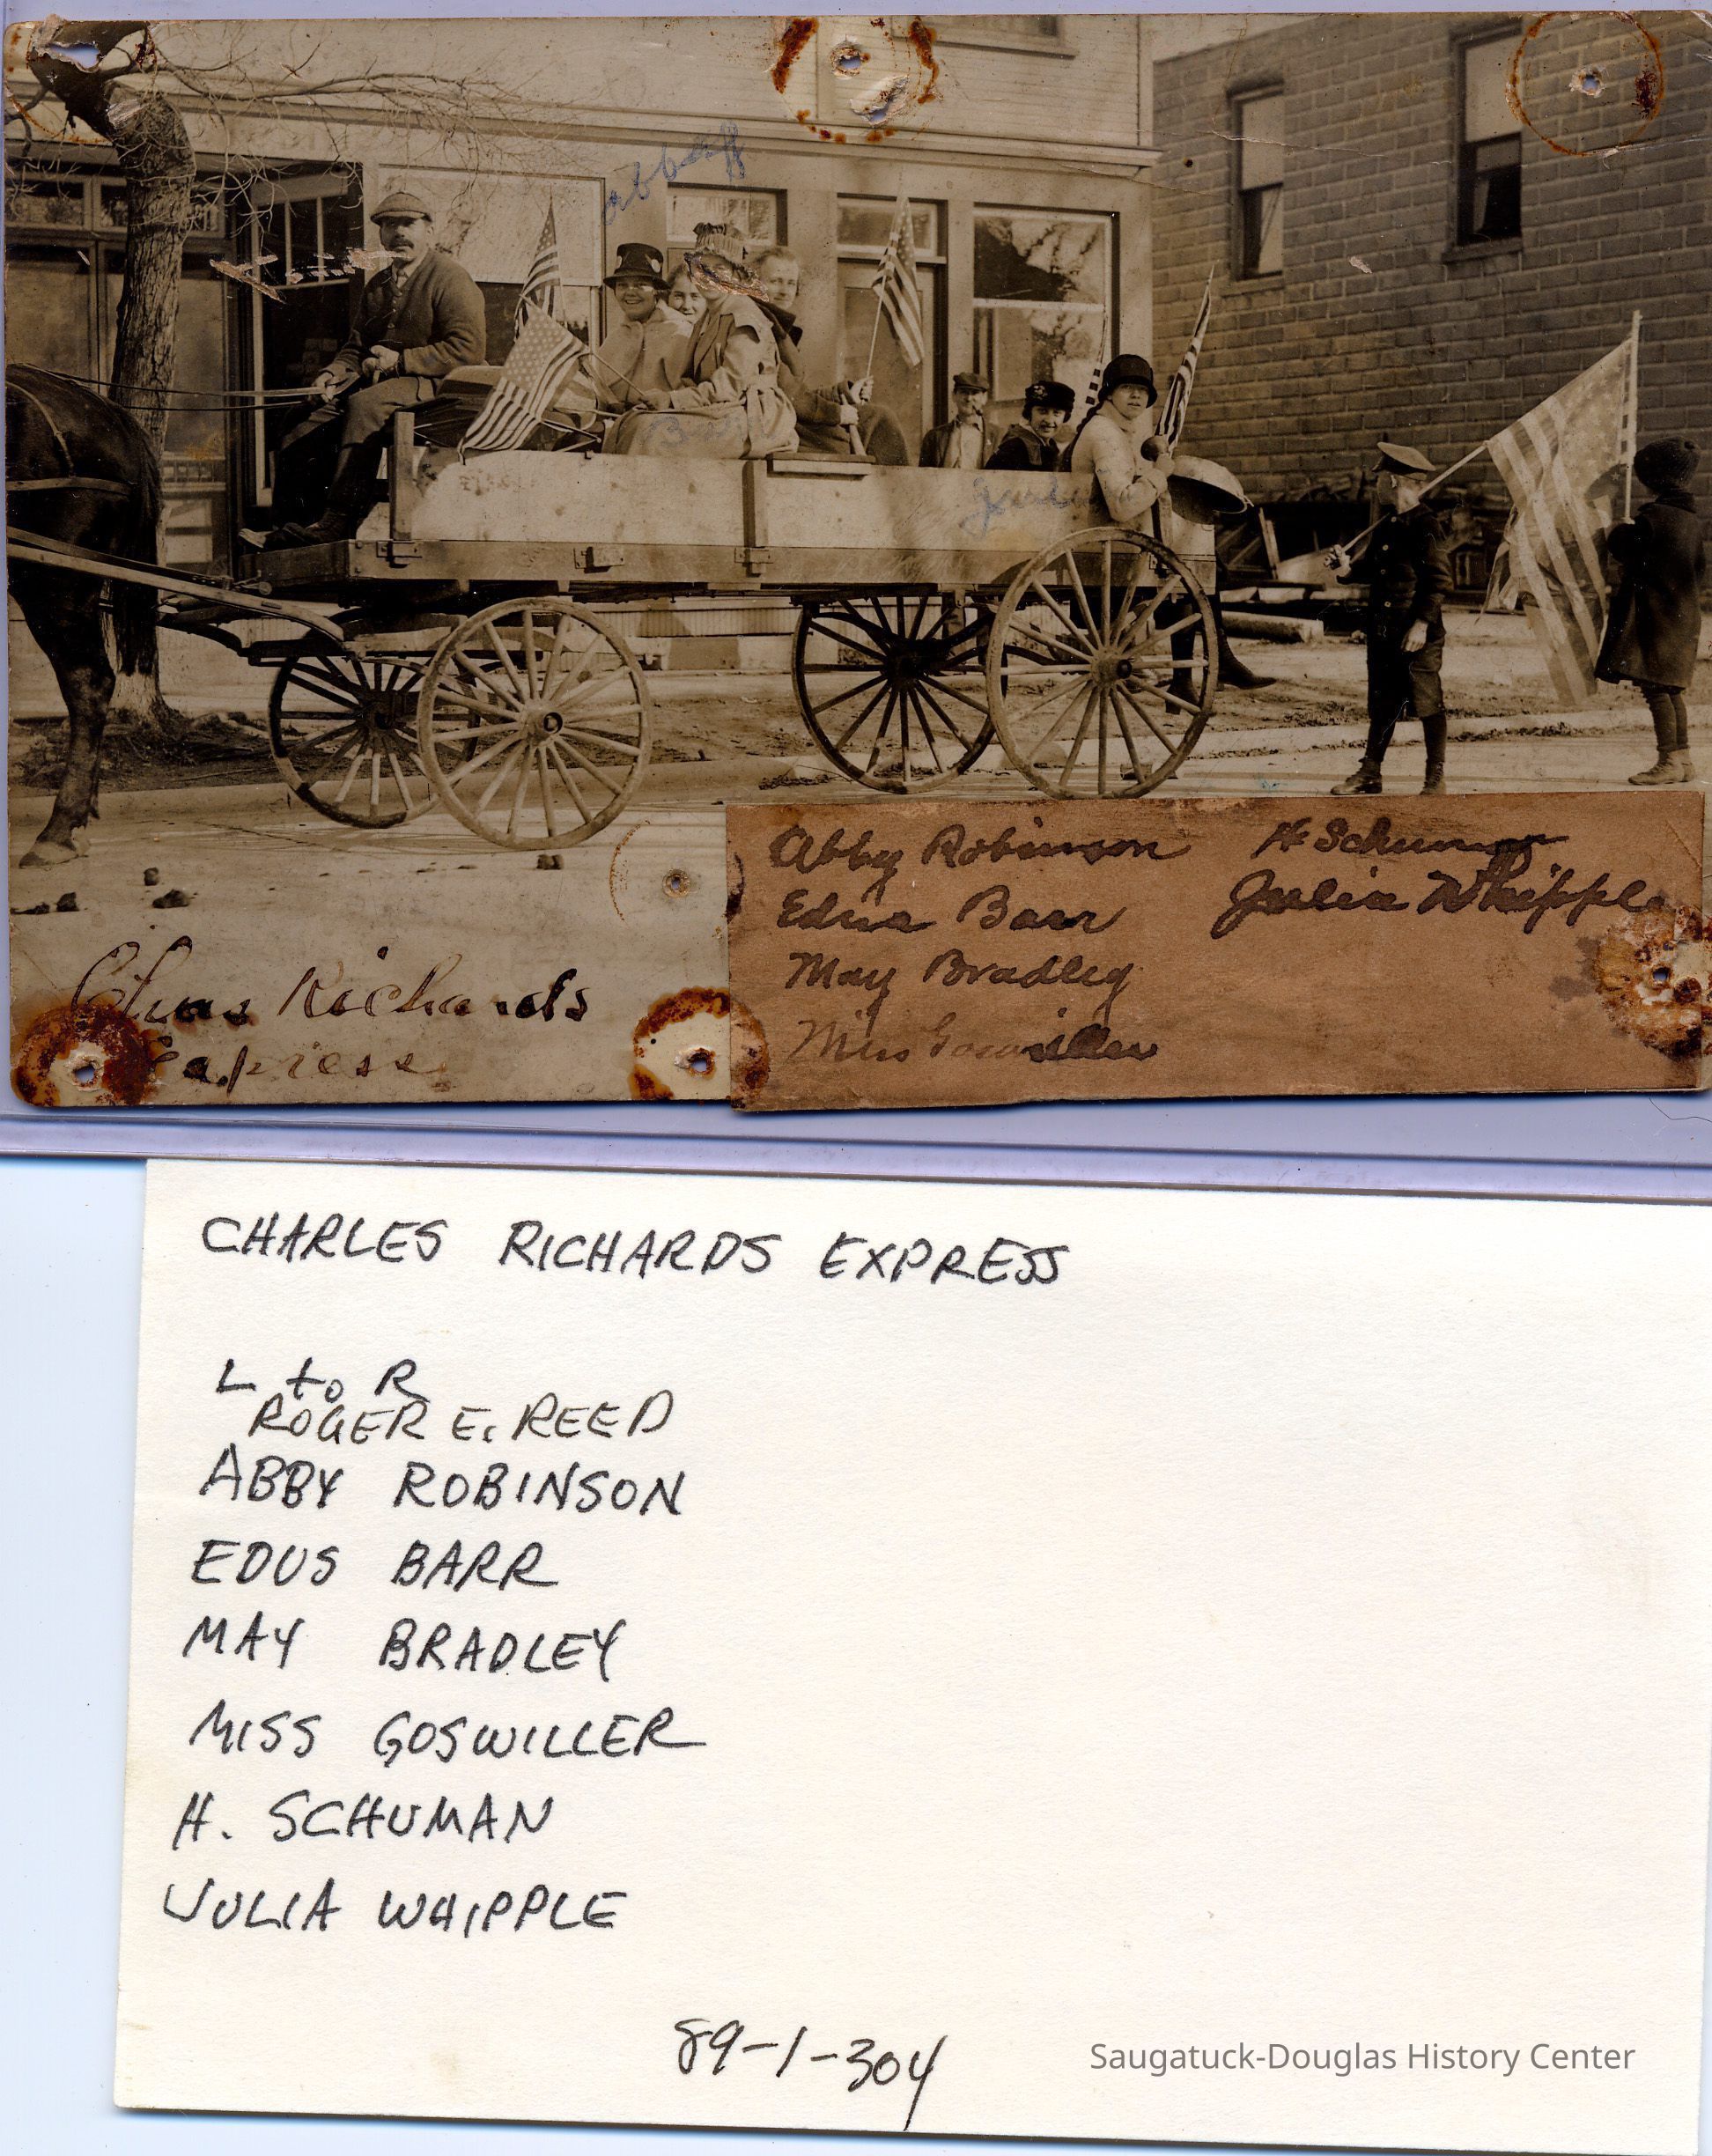 abby
Chas Richards
express
Abby Robinson
Edna Barr
May Bradley
Miss
H Schuman
Julia Whipple
CHARLES RICHARDS EXPRESS
L to R
ROGER E. REED
ABBY ROBINSON
EDUS BARR
MAY BRADLEY
MISS GOSWILLER
H. SCHUMAN
JULIA WHIPPLE
89-1-304
Saugatuck-Douglas History Center